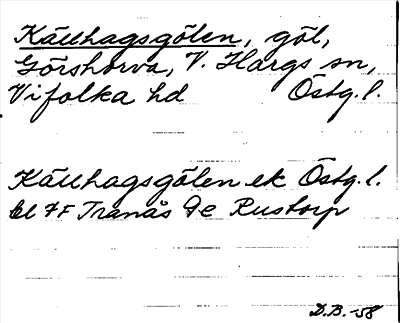 Källhagsgölen, göl,
Görshorva, V. Hargs sn,
Vifolka hd Östg.l.
Källhagsgölen ek Östg.l.
bl 7F Tranås 9e Rustorp
D.B. -58